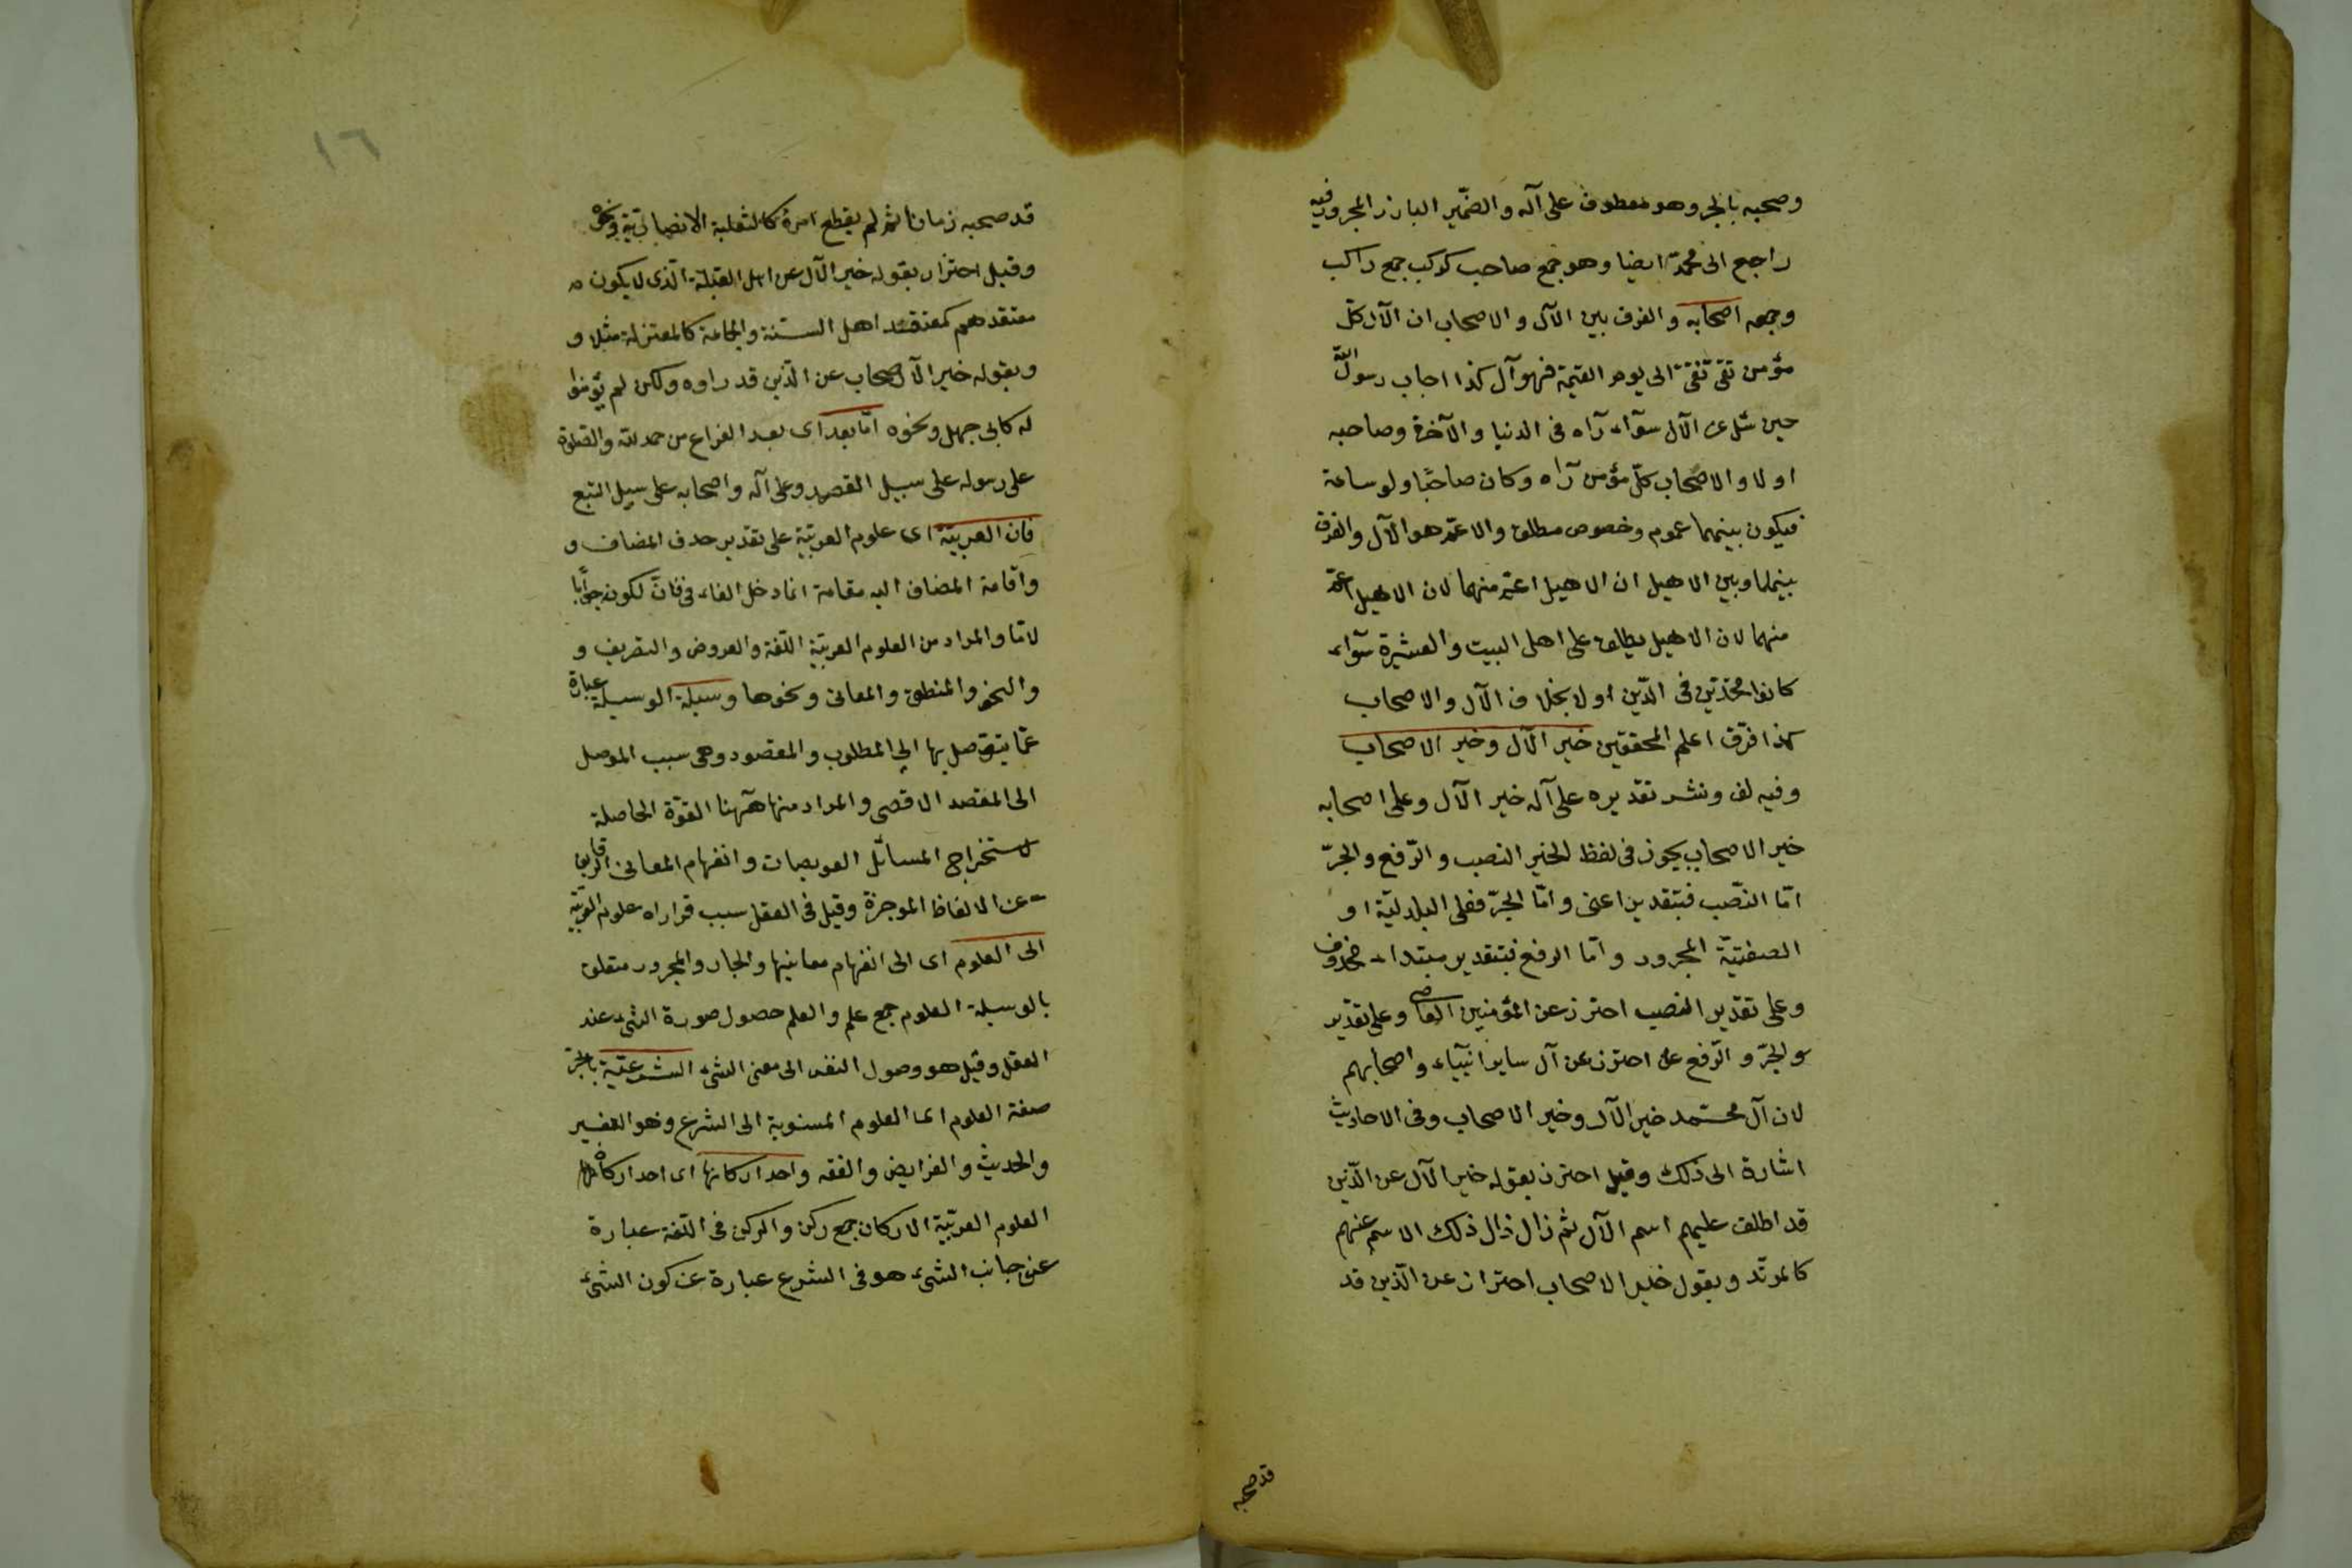 وصحبه بالجر وهو معطوف على آله والضمير البارز المجرور فيه
راجع الى محمد ايضا وهو جمع صاحب كركب جمع راكب
وجمعه اصحابه والفرق بين الآل والاصحاب ان الآل كل
مؤمن تقى نقى الى يوم القيمة فهو آل كذا اجاب رسول الله
حين سئل عن الآل سوآء رآه فى الدنيا والآخرة وصاحبه
او لا والاصحاب كلّ مؤمن رآه وكان صاحبًا ولو ساعة
فيكون بينهما عموم وخصوص مطلق والاعمّ هو الآل والفرق
بينهما وبين الاهيل ان الاهيل اعمّ منهما لان الاهيل اعمّ
منهما لان الاهيل يطلق على اهل البيت والعشيرة سوآء
كانوا متحدين فى الدّين او لا بخلاف الآل والاصحاب
كذا فرّق اعلم المحققين خير الآل وخير الاصحاب
وفيه لف ونشر تقديره على آله خير الآل وعلى اصحابه
خير الاصحاب يجوز فى لفظ الخير النصب والرّفع والجرّ
امّا النّصب فبتقدير اعنى وامّا الجرّ فعلى البدليّة او
الصفتيّة المجرور وامّا الرفع فبتقدير مبتداء محذوف
وعلى تقدير النصب احترز عن المؤمنين العاصى وعلى تقدير
والجرّ والرّفع احترز عن آل ساير انبيآء واصحابهم
لان آل محمّد خير الآل وخير الاصحاب وفى الاحاديث
اشارة الى ذلك وقيل احترز بقوله خير الآل عن الّذين
قد اطلق عليهم اسم الآل ثم زال ذلك الاسم عنهم
كالمرتّد وبقول خير الاصحاب احتراز عن الّذين قد
قد صحبه
١٦
قد صحبه زمانا ثم لم يقطع امره كالثعلبة الانصارية ونحوه
وقيل احتراز بقوله خير الآل عن اهل القبلة الّذى لا يكون
معتقدهم كمعتقد اهل السنة والجماعة كالمعتزلة مثلا و
وبقوله خير الاصحاب عن الّذين قد راوه ولكن لم يؤمنوا
له كابى جهل ونحوه امّا بعد اى بعد الفراغ من حمد لله والصّلوة
على رسوله على سبيل القصد وعلى آله واصحابه على سبيل التبع
فان العربيّة اى علوم العربيّة على تقدير حذف المضاف و
واقامة المضاف اليه مقامه انما دخل الفاء فى فانّ لكونه جوابًا
لامّا والمراد من العلوم العربيّة اللّغة والعروض والتصريف و
والنحو والمنطق والمعانى ونحوها وسيلة الوسيلة عبارة
عمّا يتوصل بها الى المطلوب والمقصود وهى سبب الموصل
الى المقصد الاقصى والمراد منها هٓهنا القوّة الحاصلة
لاستخراج المسائل العويصات وانفهام المعانى الدقايق
عن الالفاظ الموجزة وقيل فى العقل سبب قراراه علوم العربيّة
الى العلوم اى الى انفهام معانيها والجار والمجرور متعلق
بالوسيلة العلوم جمع علم والعلم حصول صورة الشئ عند
العقل وقيل هو وصول النفس الى معنى الشئ الشرعيّة بالجرّ
صفة العلوم اى العلوم المنسوبة الى الشرع وهو التفسير
والحديث والفرايض والفقه واحد اركانها اى احد اركان
العلوم العربيّة الاركان جمع ركن والركن فى اللّغة عبارة
عن جانب الشئ هو فى الشرع عبارة عن كون الشئ